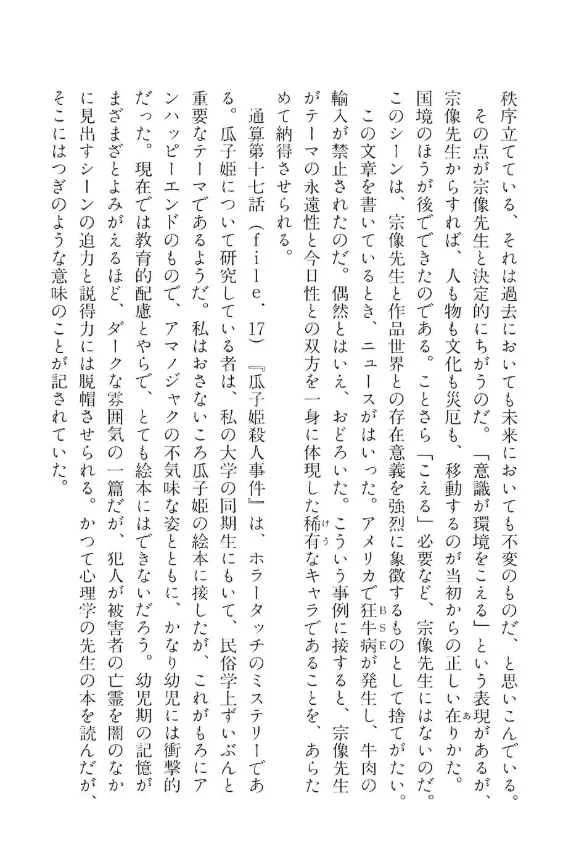 秩序立てている、それは過去においても未来においても不変のものだ、と思いこんでいる。
その点が宗像先生と決定的にちがうのだ。「意識が環境をこえる」という表現があるが、
宗像先生からすれば、人も物も文化も災厄も、移動するのが当初からの正しい在りかた。
国境のほうが後でできたのである。ことさら「こえる」必要など、宗像先生にはないのだ。
このシーンは、宗像先生と作品世界との存在意義を強烈に象徴するものとして捨てがたい。
この文章を書いているとき、ニュースがはいった。アメリカで狂牛病が発生し、牛肉の
輸入が禁止されたのだ。偶然とはいえ、おどろいた。こういう事例に接すると、宗像先生
がテーマの永遠性と今日性との双方を一身に体現した稀有なキャラであることを、あらた
めて納得させられる。
通算第十七話（ｆｉｌｅ．17）『瓜子姫殺人事件』は、ホラータッチのミステリーであ
る。瓜子姫について研究している者は、私の大学の同期生にもいて、民俗学上ずいぶんと
重要なテーマであるようだ。私はおさないころ瓜子姫の絵本に接したが、これがもろにア
ンハッピーエンドのもので、アマノジャクの不気味な姿とともに、かなり幼児には衝撃的
だった。現在では教育的配慮とやらで、とても絵本にはできないだろう。幼児期の記憶が
まざまざとよみがえるほど、ダークな雰囲気の一篇だが、犯人が被害者の亡霊を闇のなか
に見出すシーンの迫力と説得力には脱帽させられる。かつて心理学の先生の本を読んだが、
そこにはつぎのような意味のことが記されていた。